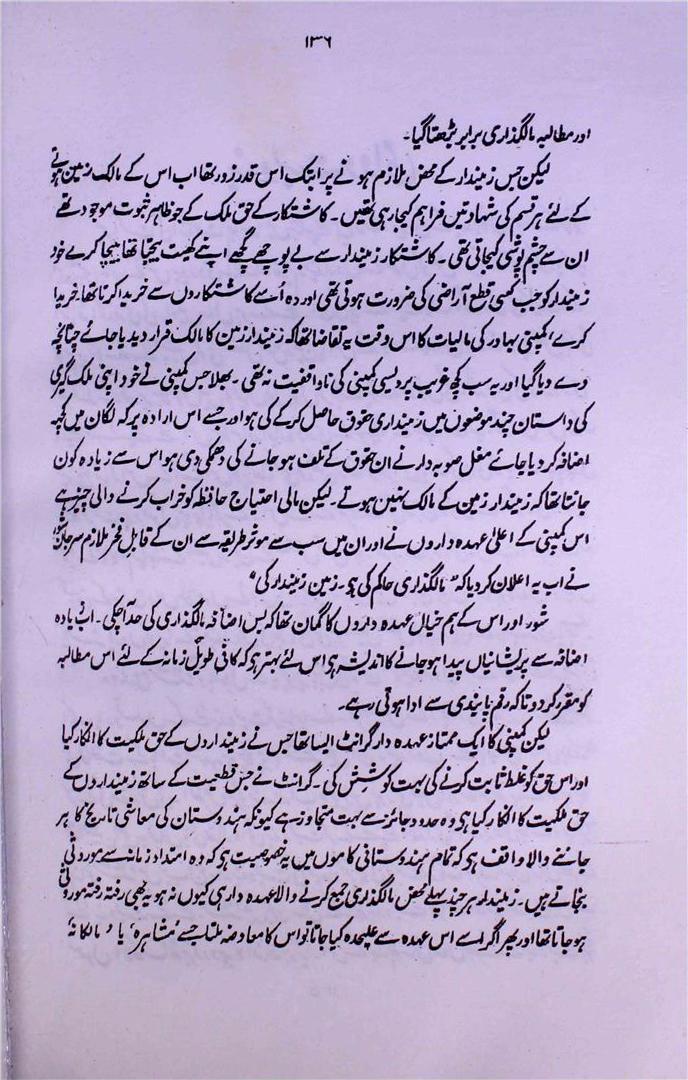 ۱۳۶
اور مطالبہ مالگذاری برابر بڑھتا گیا۔
لیکن جس زمیندار کے محض ملازم ہونے پر ابتک اس قدر زور تھا اب اس کے مالک زمین ہونے
کے لئے ہر قسم کی شہادتیں فراہم کیجارہی تھیں۔ کاشتکار کے حق ملک کے جو ظاہر ثبوت موجود تھے
ان سے چشم پوشی کیجاتی تھی۔ کاشتکار زمیندار سے بے پوچھے گچھے اپنے کھیت بیچتا تھا بیچا کرے خود
زمیندار کو جب کسی قطع آراضی کی ضرورت ہوتی تھی اور وہ اُسے کاشتکاروں سے خریدا کرتا تھا، خریدا
کرے، کمپنی بہادر کی مالیات کا اس وقت یہ تقاضا تھا کہ زمیندار زمین کا مالک قرار دیدیا جائے چنانچہ
دے دیا گیا اور یہ سب کچھ غریب پردیسی کمپنی کی ناواقفیت نہ تھی۔ بھلا جس کمپنی نے خود اپنی ملک گیری
کی داستان چند موضعوں میں زمینداری حقوق حاصل کرکے کی ہو اور جسے اس ارادہ پر کہ لگان میں کچھ
اضافہ کر دیا جائے مغل صوبہ دار نے ان حقوق کے تلف ہو جانے کی دھمکی دی ہو اس سے زیادہ کون
جانتا تھا کہ زمیندار زمین کے مالک نہیں ہوتے۔ لیکن مالی احتیاج حافظہ کو خراب کرنے والی چیز ہے
اس کمپنی کے اعلیٰ عہدہ داروں نے اور ان میں سب سے موثر طریقہ سے ان کے قابل فخر ملازم سرجان شور
نے اب یہ اعلان کر دیا کہ "مالگذاری حاکم کی ہی۔ زمین زمیندار کی"
شور اور اس کے ہم خیال عہدہ داروں کا گمان تھا کہ بس اضافہ مالگذاری کی حد آچکی۔ اب زیادہ
اضافہ سے پریشانیاں پیدا ہو جانے کا اندیشہ ہی اس لئے بہتر ہی کہ کافی طویل زمانہ کے لئے اس مطالبہ
کو مقرر کر دو تاکہ رقم پابندی سے ادا ہوتی رہے۔
لیکن کمپنی کا ایک ممتاز عہدہ دار گرانٹ ایسا تھا جس نے زمینداروں کے حق ملکیت کا انکار کیا
اور اس حق کو غلط ثابت کرنے کی بہت کوشش کی۔ گرانٹ نے جس قطعیت کے ساتھ زمینداروں کے
حق ملکیت کا انکار کیا ہی وہ حدود جائز سے بہت متجاوز ہے کیونکہ ہندوستان کی معاشی تاریخ کا ہر
جاننے والا واقف ہی کہ تمام ہندوستانی کاموں میں یہ خصوصیت ہی کہ وہ امتداد زمانہ سے موروثی
بنجاتے ہیں۔ زمیندار ہر چند پہلے محض مالگذاری جمع کرنے والا عہدہ دار ہی کیوں نہ ہو یہ بھی رفتہ رفتہ موروثی
ہو جاتا تھا اور پھر اگر اسے اس عہدہ سے علیحدہ کیا جاتا تو اس کا معاوضہ ملتا جسے 'مشاہرہ' یا 'مالکانہ'